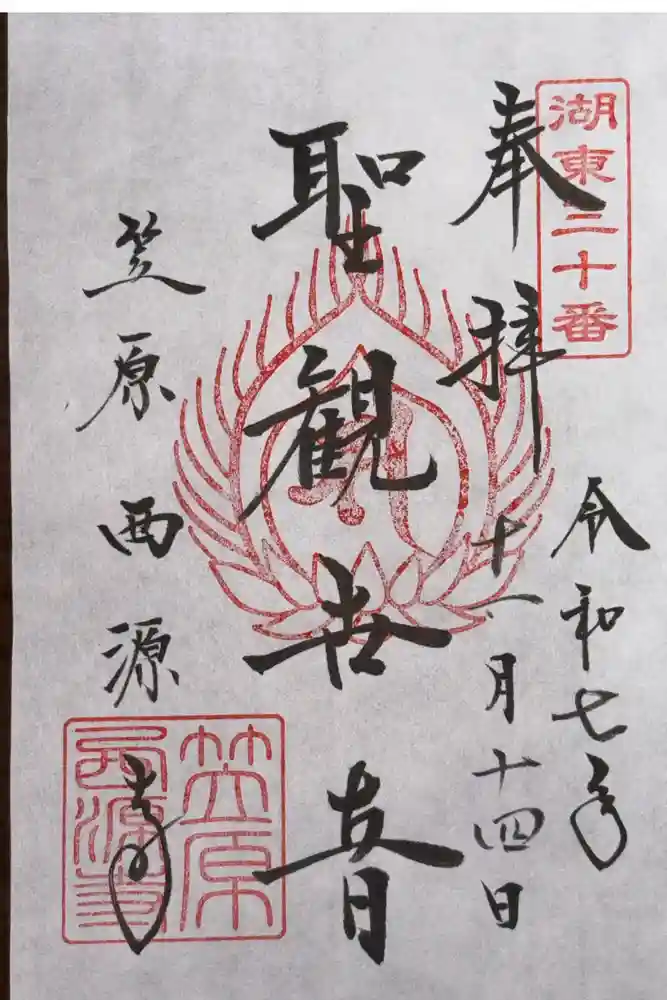 湖東三十番
奉拝
令和七年
十一月十四日
聖観世音
笠原西源寺
笠原
西源寺